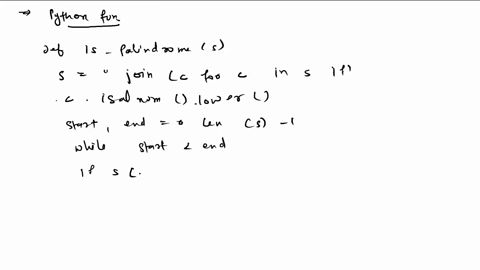 → Python fun
def is_Palindrome (s)
s = " join (c for c in s if
. c . isalnum () .lower ()
start, end = 0 len (s) - 1
while start < end
if s [.